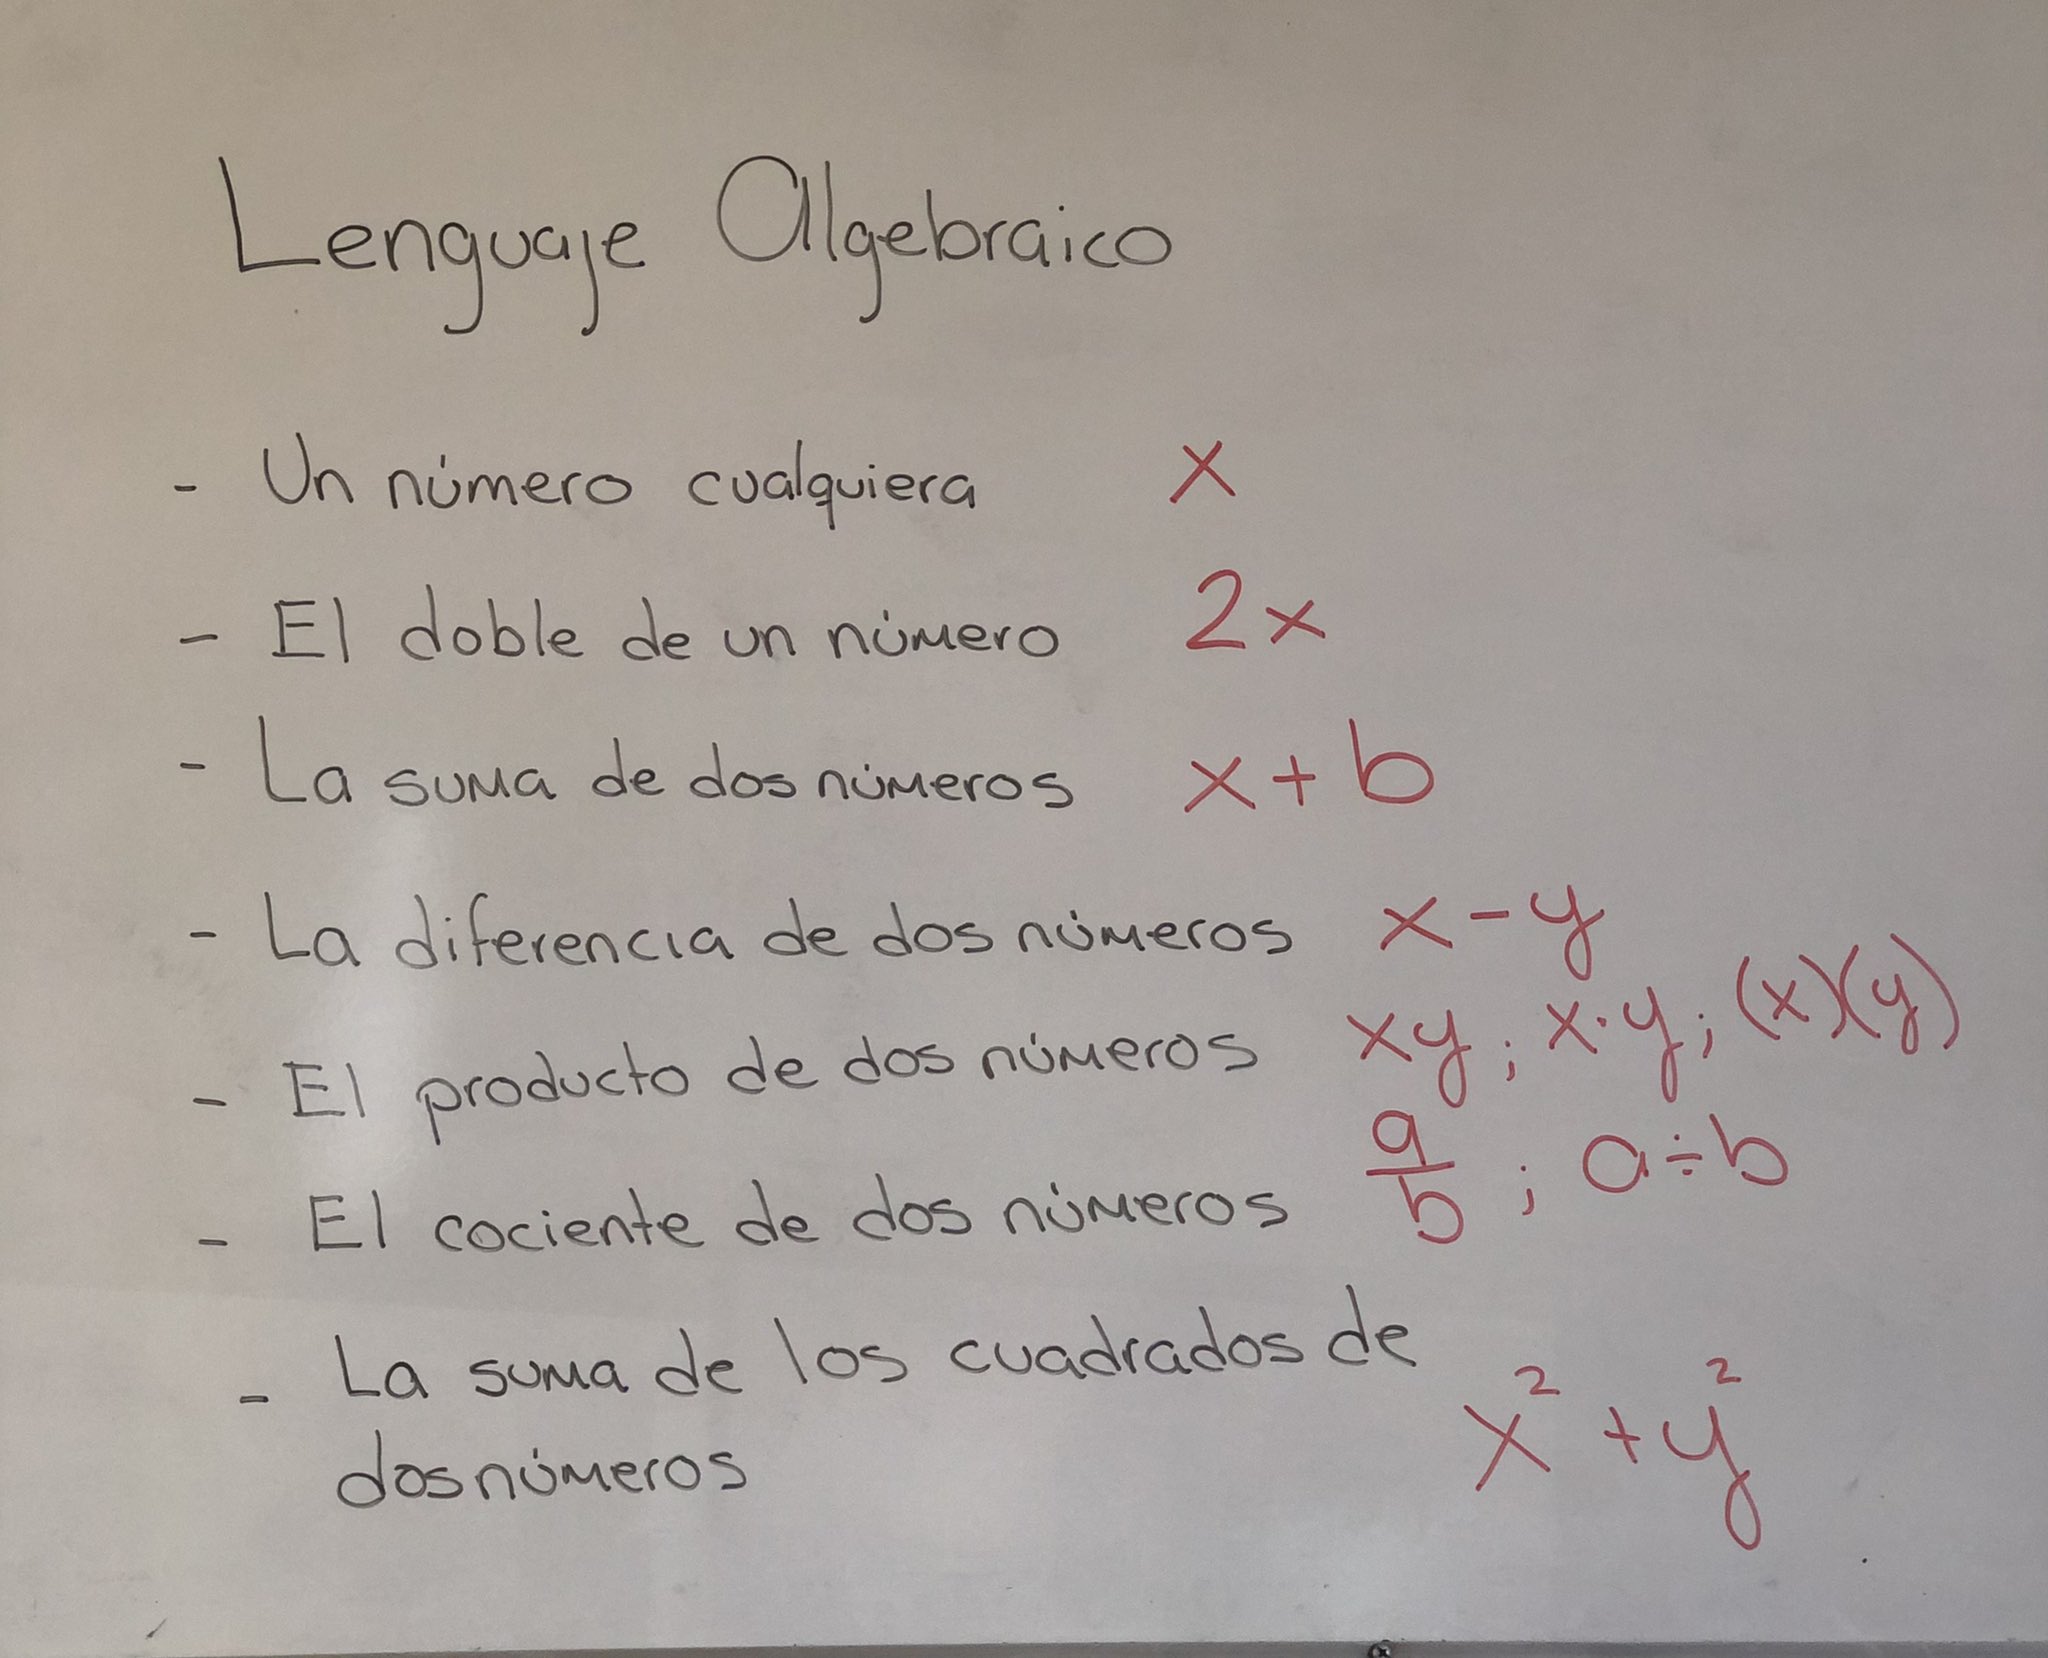 Lenguaje Algebraico
- Un número cualquiera x
- El doble de un número 2x
- La suma de dos números x + b
- La diferencia de dos números x - y
- El producto de dos números xy ; x · y ; (x)(y)
- El cociente de dos números a/b ; a ÷ b
- La suma de los cuadrados de
dos números x² + y²